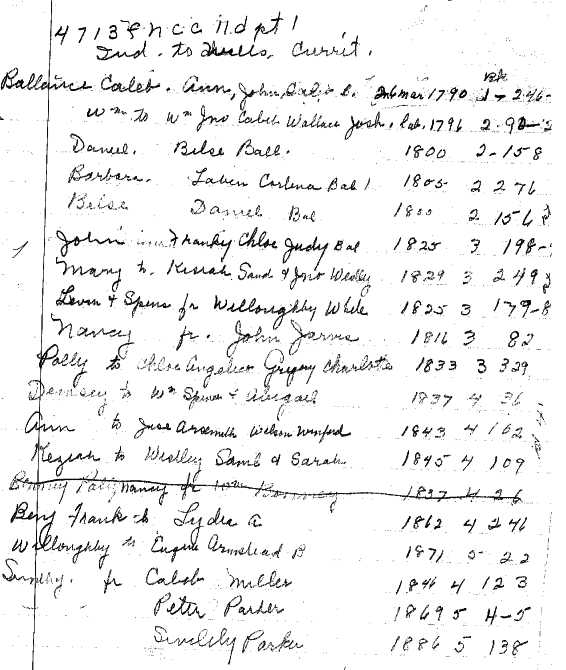 47138 N C C 11.d pt 1
Ind. to Wills, Currit.
Ballance Caleb. Ann, John, Caleb C. Mar 1790 1- 246-
Wm to Wm Jno Caleb Wallace Josh. 1796 2-90-
Daniel. Belse Ball. 1800 2-158
Barbara. Laben Bal 1805 2 276
Belse Daniel Bal 1800 2 156
John Franky Chloe Judy Bal 1825 3 198-
Mary to Kesiah Sand & Jno Wesley 1829 3 249
Levin & Spens fr Willoughby White 1825 3 179-8
Nancy fr. John Jarvis 1816 3 82
Polly to Chloe Angelico Gregory Charlotte 1833 3 329
Demsey to Wm Spence & Abigail 1837 4 36
Ann to Jesse Arsemeth Welson Winford 1843 4 162
Keziah to Westley Samb & Sarah 1845 4 109
Bonney Polly Nancy fr Wm Bonney 1837 4 26
Benj Frank to Lydia A 1862 4 246
Willoughby to Eugene Armstead B 1871 5 22
fr Caleb Miller 1846 4 123
Peter Parker 1869 5 4-5
Parker 1886 5 138